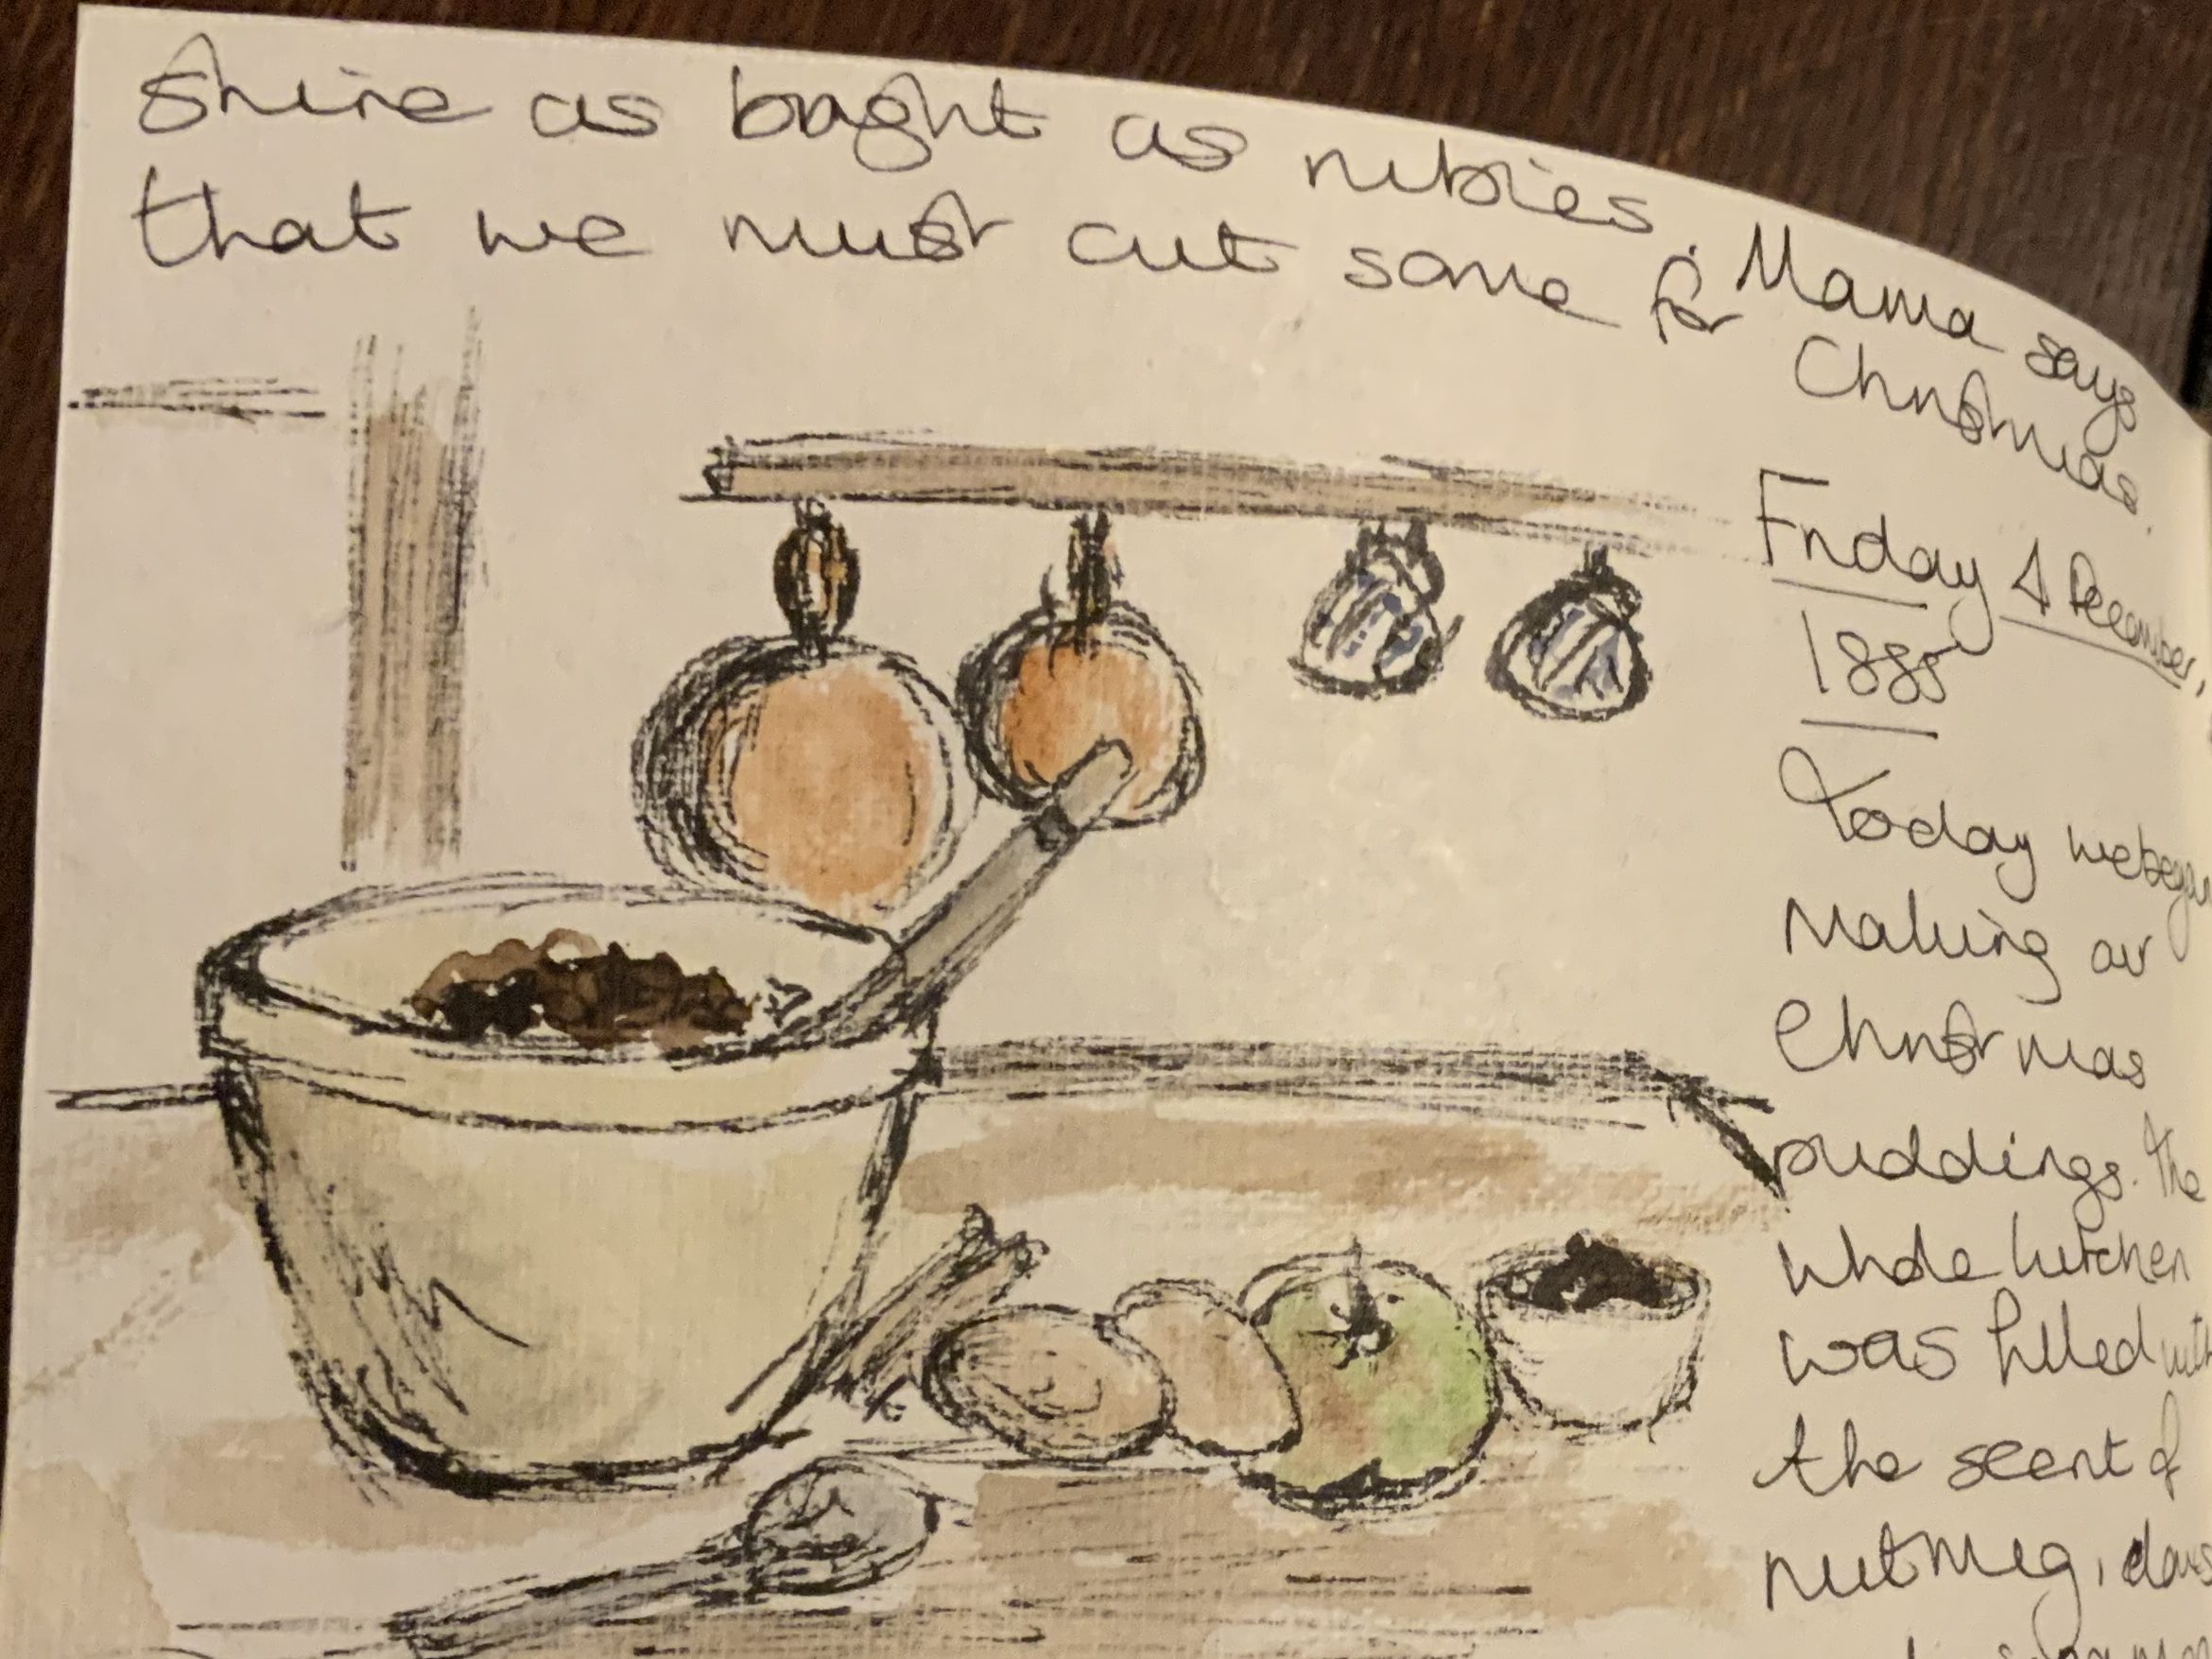 shine as bright as rubies. Mama says
that we must cut some for Christmas.
Friday 4 December,
1885
Today we began
Making our
Christmas
puddings. The
whole kitchen
was filled with
the scent of
nutmeg, cloves